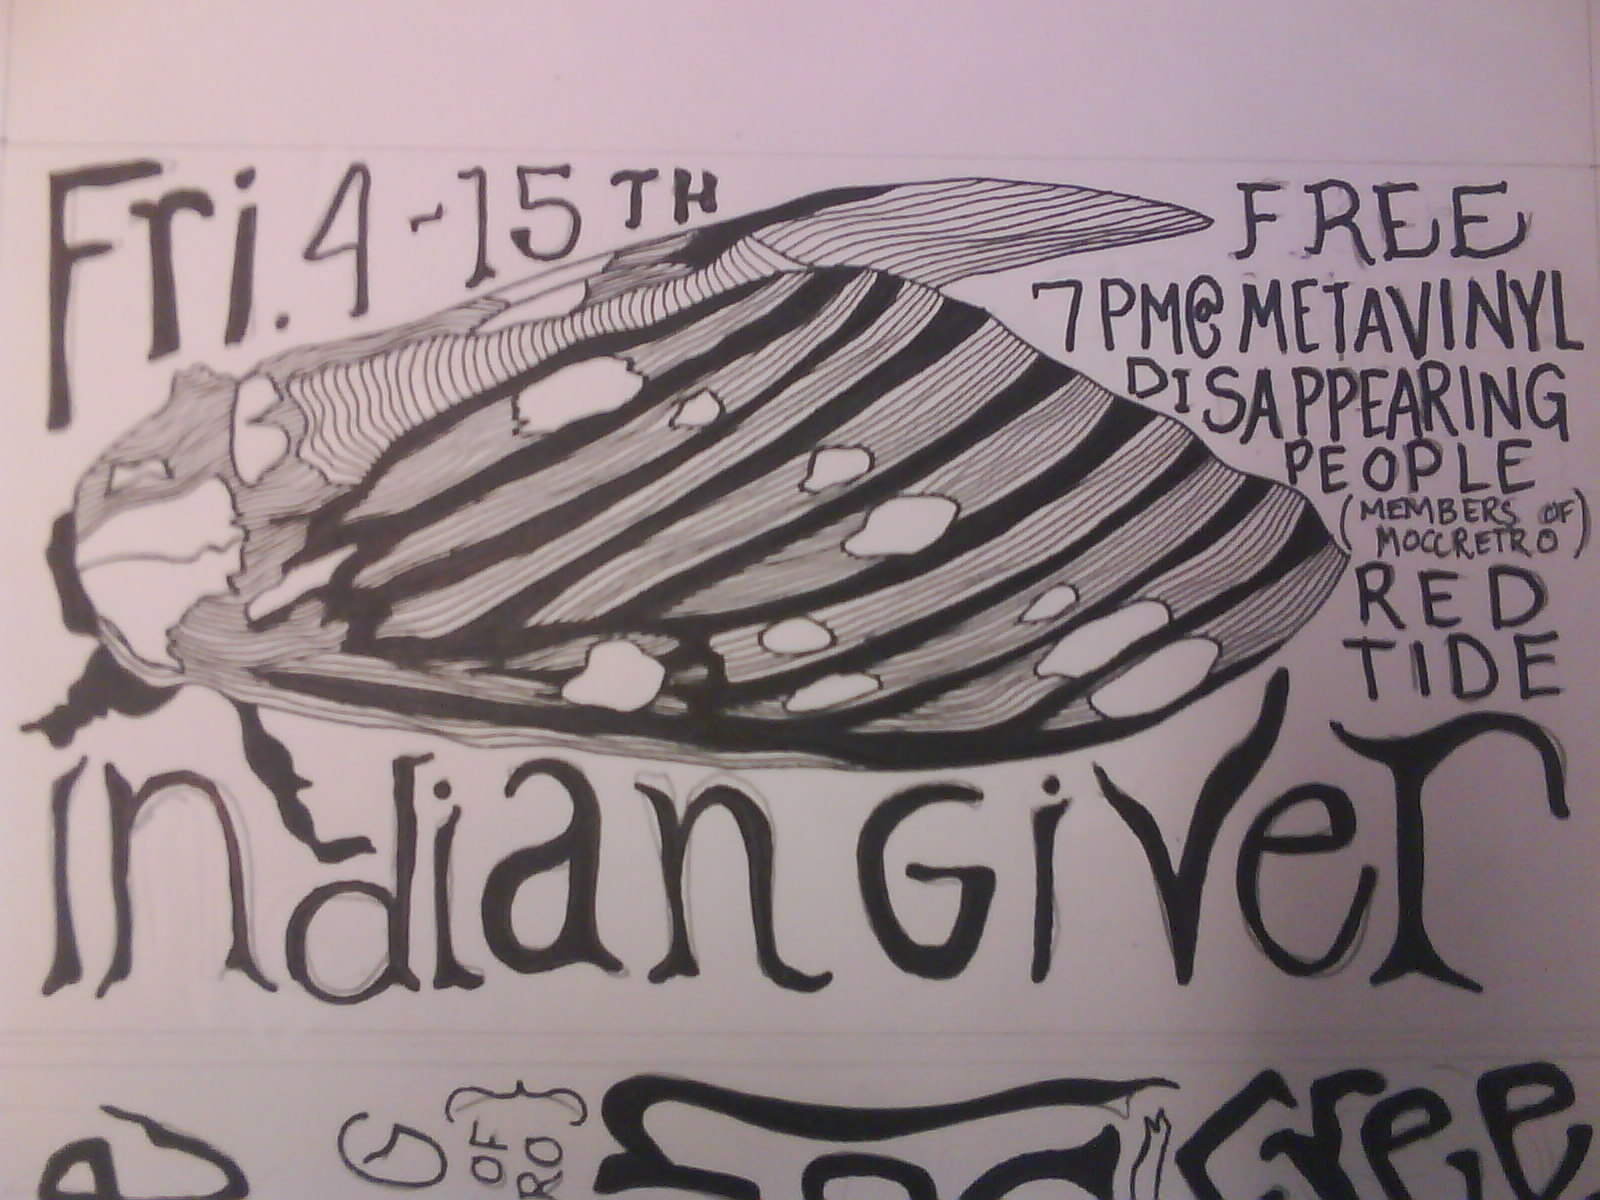 Fri. 4-15TH
FREE
7PM@METAVINYL
DISAPPEARING
PEOPLE
(MEMBERS OF)
MOCCRETRO
RED
TIDE
indian Giver
G
OF
RO
Free